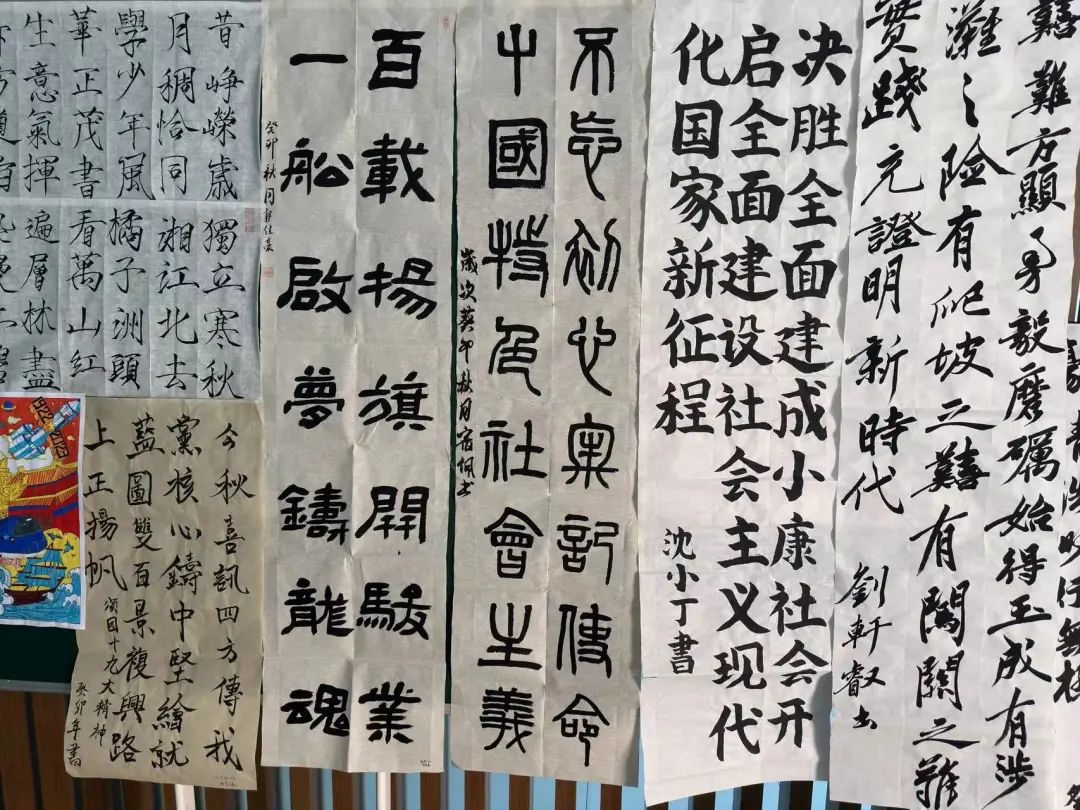 囏難方顯勇毅磨礪始得玉成有涉
灘之險有爬坡之囏有闖關之難
實踐充證明新時代
劉軒叡书
决胜全面建成小康社会开
启全面建设社会主义现代
化国家新征程
沈小丁書
不忘初心牢記使命
中國特色社會主義
歲次癸卯秋月宿佩书
百載揚旗開駿業
一船啟夢鑄龍魂
癸卯秋月
昔崢嶸歲
月稠恰同
學少年風
華正茂書
生意氣揮
獨立寒秋
湘江北去
橘子洲頭
看萬山紅
遍層林盡
今秋喜訊四方傳我
黨核心鑄中堅繪就
藍圖雙百景複興路
上正揚帆
大精神
癸卯年書